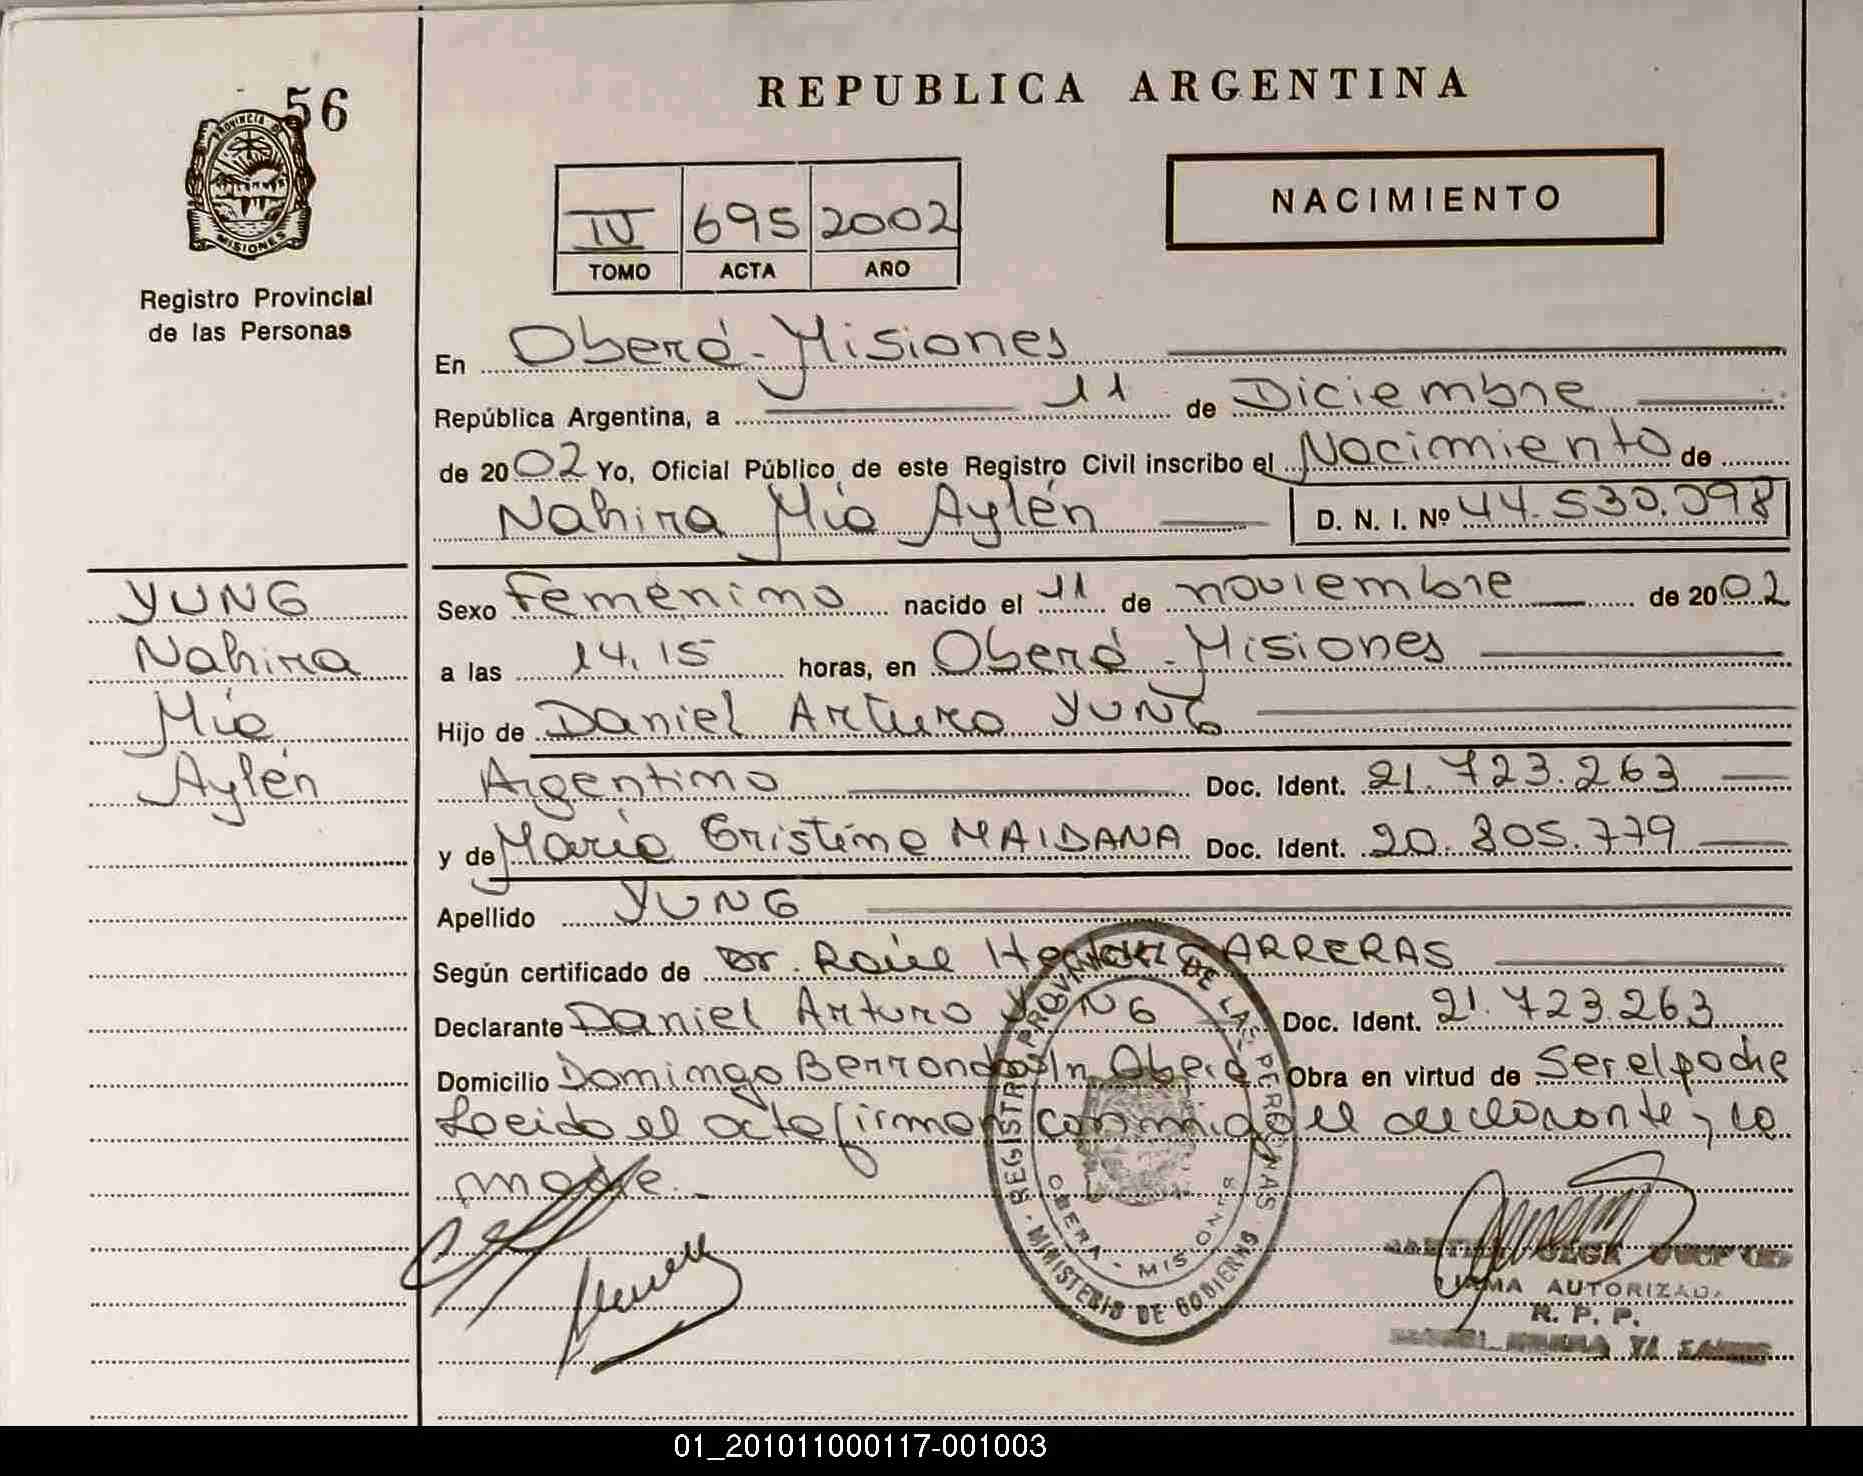 56
PROVINCIA DE
MISIONES
Registro Provincial
de las Personas
REPUBLICA ARGENTINA
NACIMIENTO
IV 695 2002
TOMO ACTA AÑO
En Oberá - Misiones
República Argentina, a 11 de Diciembre
de 2002 Yo, Oficial Público de este Registro Civil inscribo el Nacimiento de
Nahira Mía Aylén D. N. I. Nº 44.530.098
YUNG
Nahira
Mía
Aylén
Sexo femenino nacido el 11 de noviembre de 2002
a las 14,15 horas, en Oberá - Misiones
Hijo de Daniel Arturo YUNG
Argentino Doc. Ident. 21.723.263
y de María Cristina MAIDANA Doc. Ident. 20.805.779
Apellido YUNG
Según certificado de Dr. Raúl Hector CARRERAS
Declarante Daniel Arturo YUNG Doc. Ident. 21.723.263
Domicilio Domingo Berrondo s/n Oberá Obra en virtud de Ser el padre
Leído el acta firman conmigo el declarante y la
madre.
REGISTRO PROVINCIAL DE LAS PERSONAS
OBERA - MISIONES
MINISTERIO DE GOBIERNO
OLGA
FIRMA AUTORIZADA
R. P. P.
01_201011000117-001003